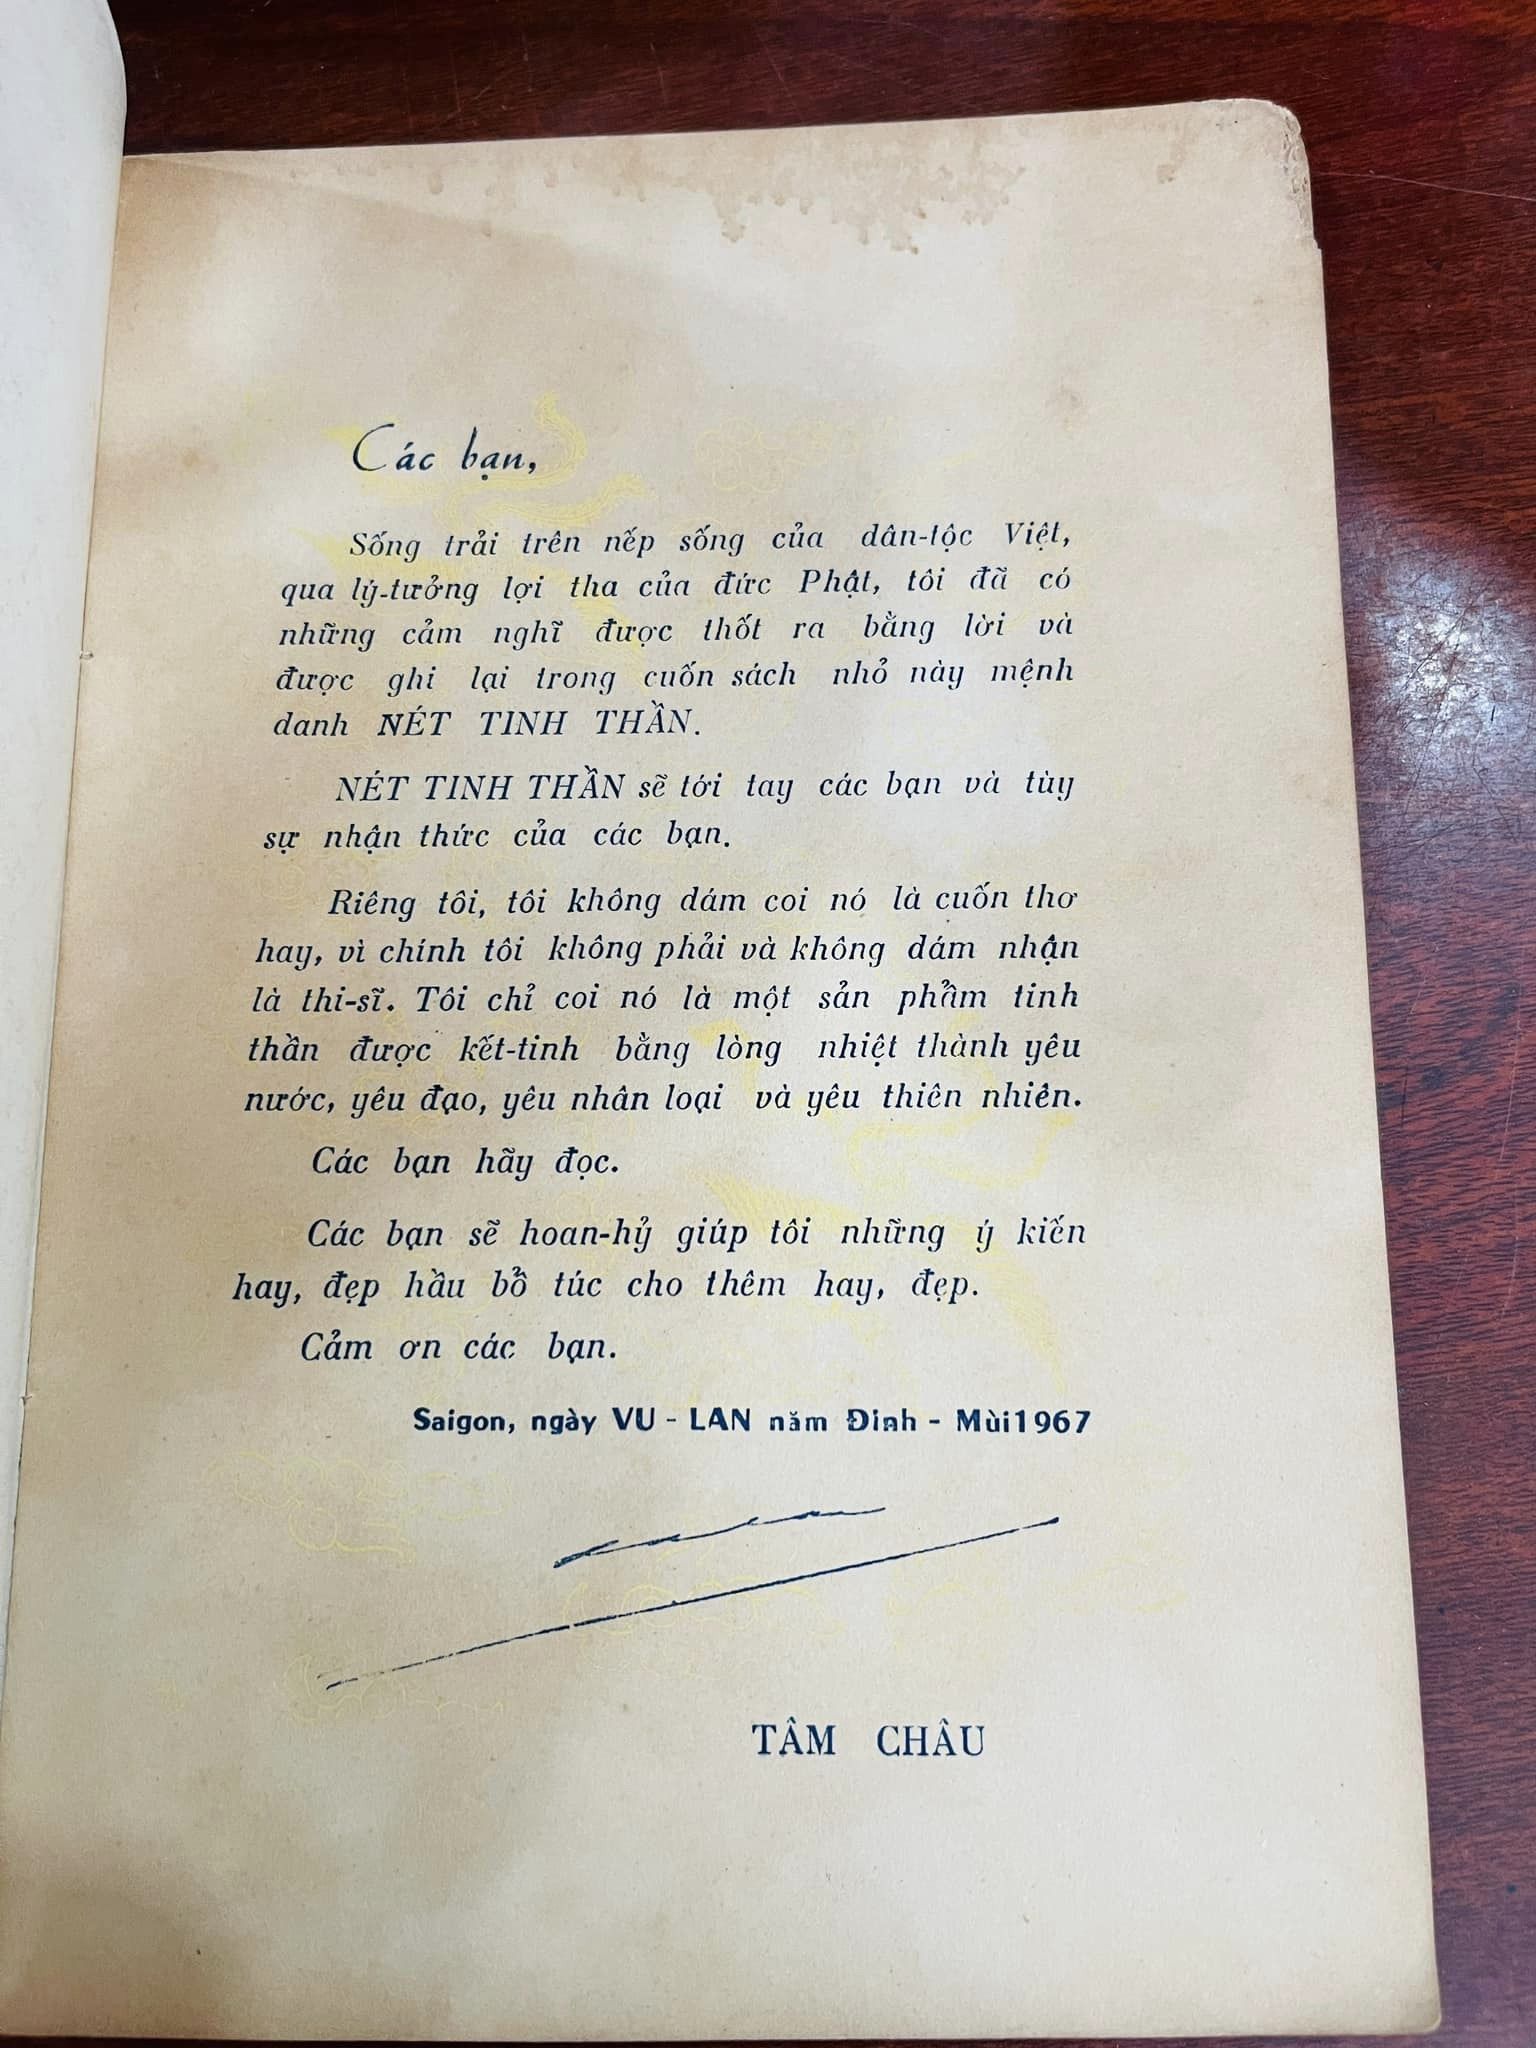 Các bạn,
Sống trải trên nếp sống của dân-tộc Việt,
qua lý-tưởng lợi tha của đức Phật, tôi đã có
những cảm nghĩ được thốt ra bằng lời và
được ghi lại trong cuốn sách nhỏ này mệnh
danh NÉT TINH THẦN.
NÉT TINH THẦN sẽ tới tay các bạn và tùy
sự nhận thức của các bạn.
Riêng tôi, tôi không dám coi nó là cuốn thơ
hay, vì chính tôi không phải và không dám nhận
là thi-sĩ. Tôi chỉ coi nó là một sản phẩm tinh
thần được kết-tinh bằng lòng nhiệt thành yêu
nước, yêu đạo, yêu nhân loại và yêu thiên nhiên.
Các bạn hãy đọc.
Các bạn sẽ hoan-hỷ giúp tôi những ý kiến
hay, đẹp hầu bổ túc cho thêm hay, đẹp.
Cảm ơn các bạn.
Saigon, ngày VU - LAN năm Đinh - Mùi 1967
TÂM CHÂU